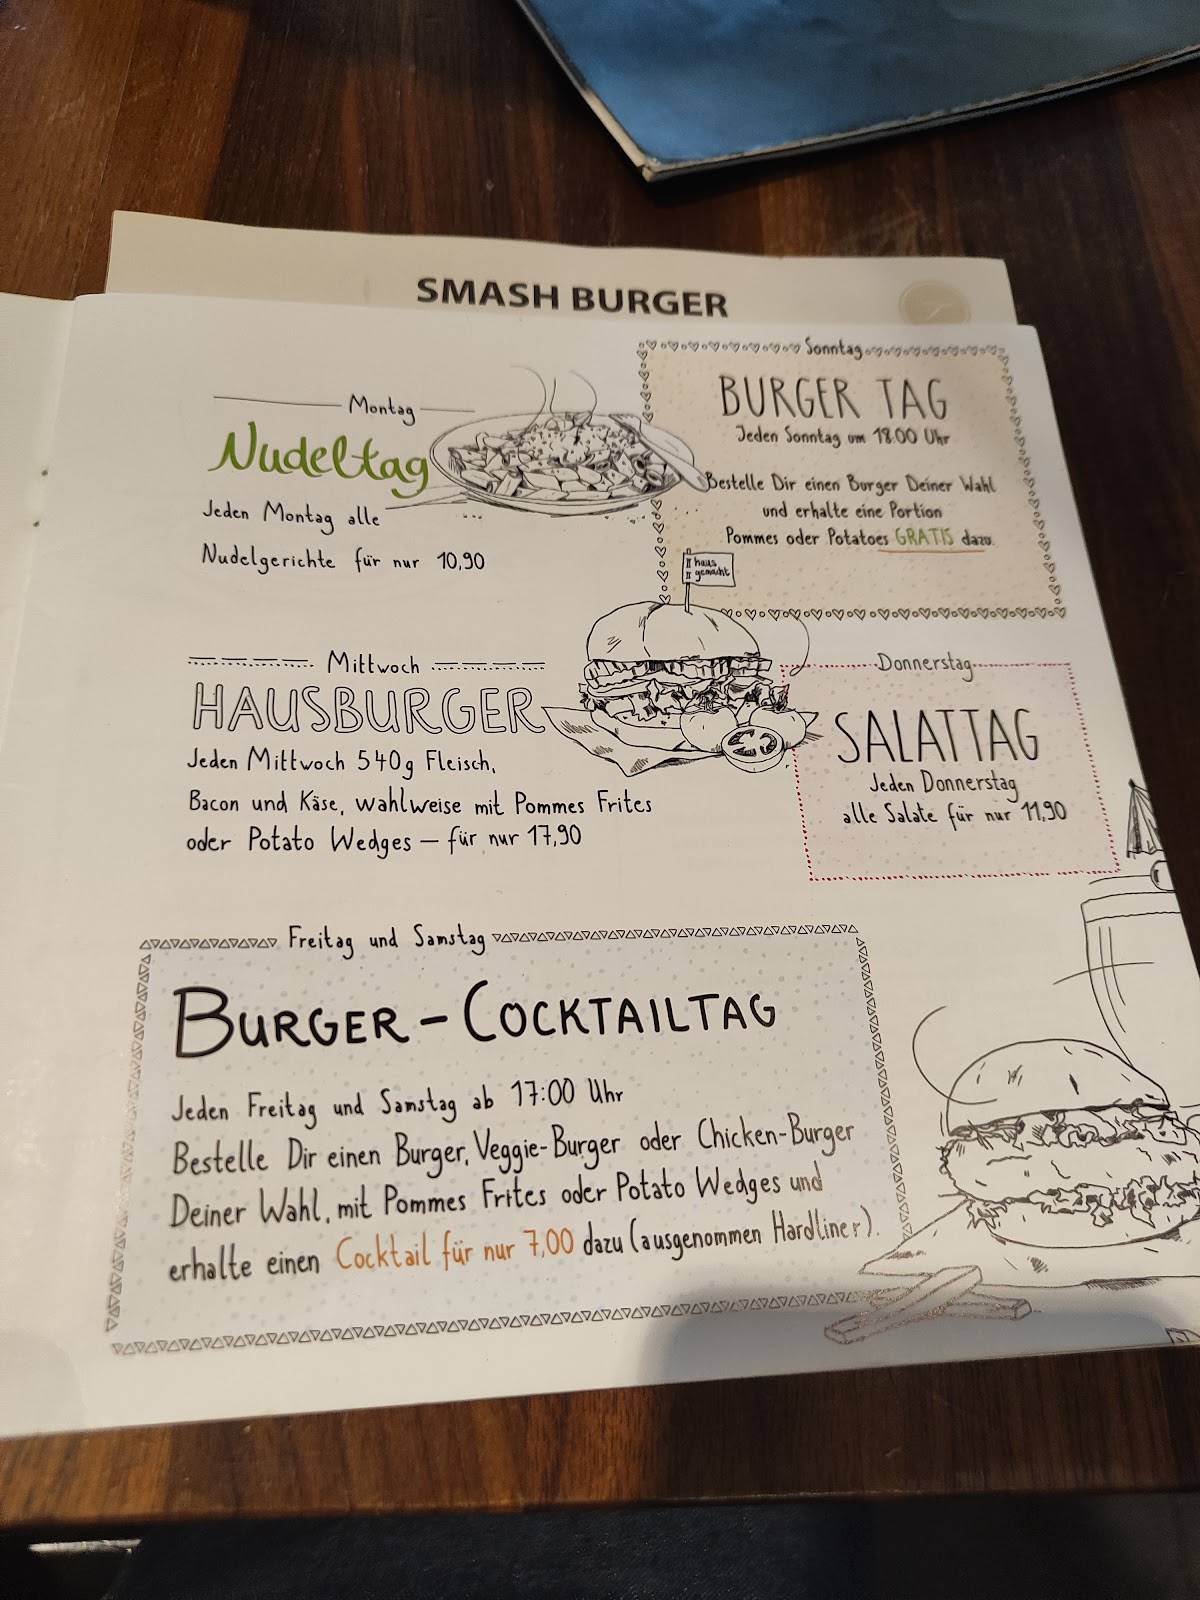 SMASH BURGER
Montag
Nudeltag
Jeden Montag alle
Nudelgerichte für nur 10,90
Sonntag
BURGER TAG
Jeden Sonntag um 18.00 Uhr
Bestelle Dir einen Burger Deiner Wahl
und erhalte eine Portion
Pommes oder Potatoes GRATIS dazu.
haus
gemacht
Mittwoch
HAUSBURGER
Jeden Mittwoch 540g Fleisch,
Bacon und Käse, wahlweise mit Pommes Frites
oder Potato Wedges – für nur 17,90
Donnerstag
SALATTAG
Jeden Donnerstag
alle Salate für nur 11,90
Freitag und Samstag
BURGER - COCKTAILTAG
Jeden Freitag und Samstag ab 17:00 Uhr
Bestelle Dir einen Burger, Veggie-Burger oder Chicken-Burger
Deiner Wahl, mit Pommes Frites oder Potato Wedges und
erhalte einen Cocktail für nur 7,00 dazu (ausgenommen Hardliner).